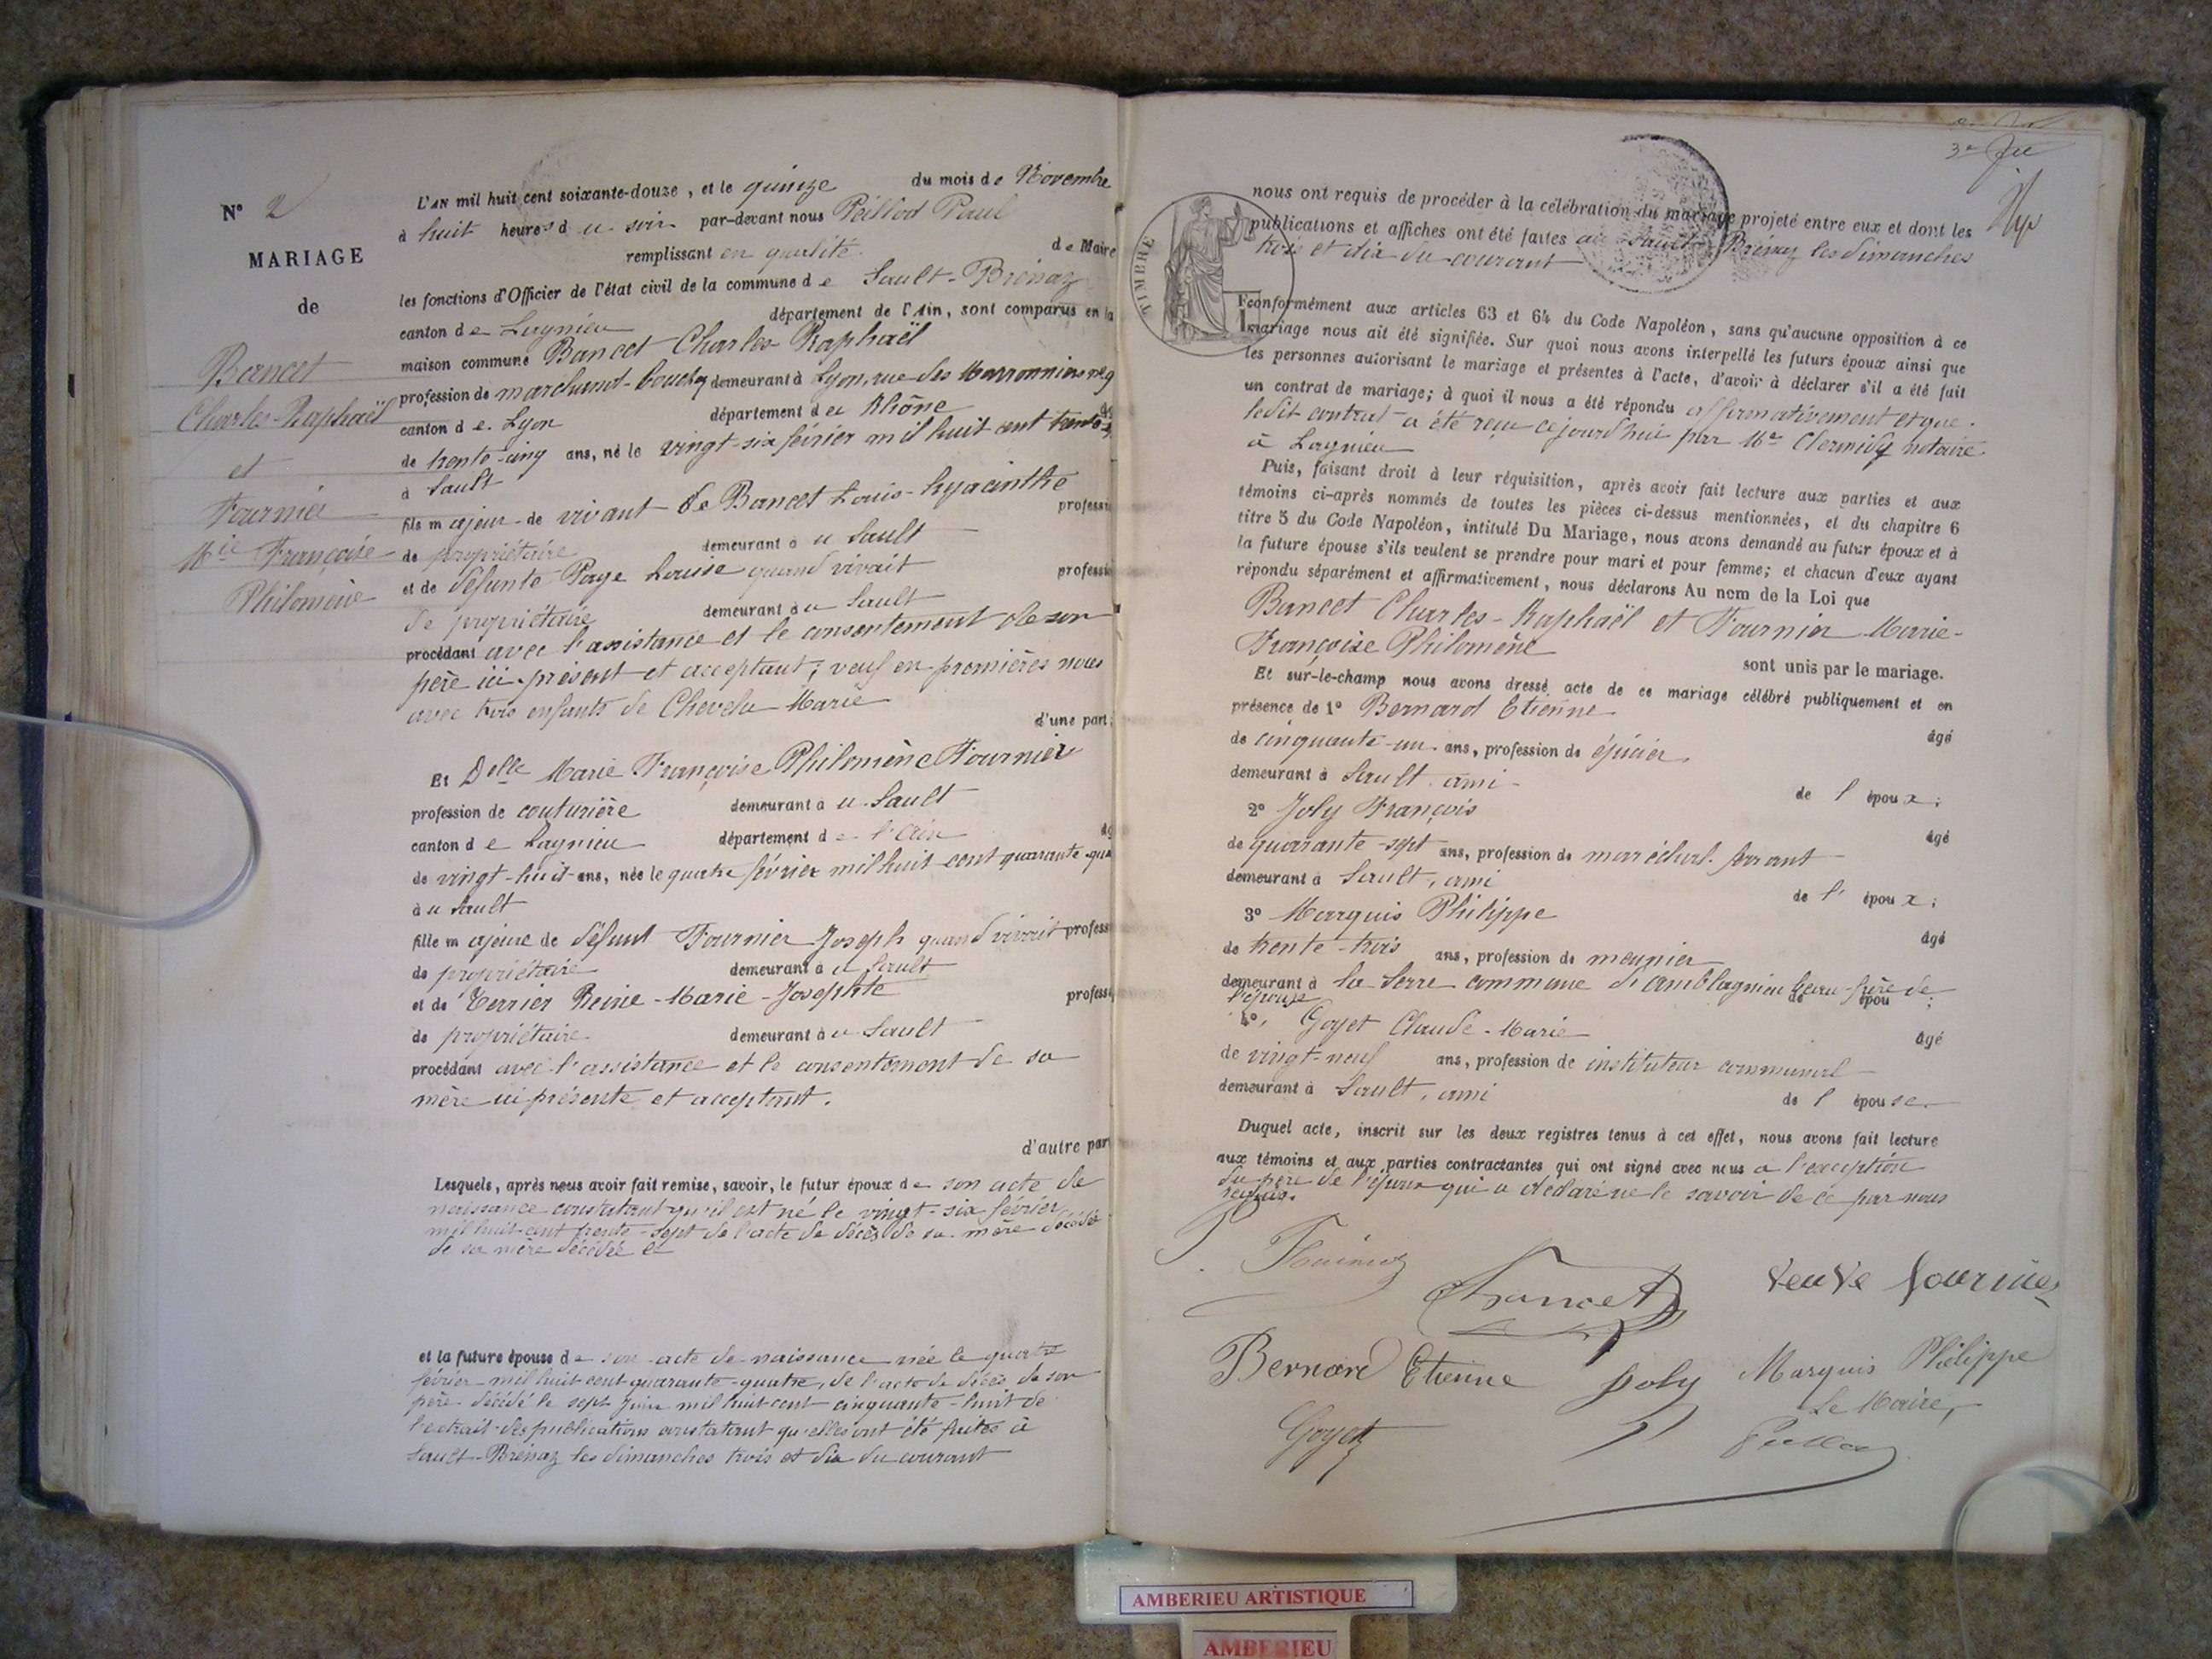 N° 2
MARIAGE
de
Bancet
Charles-Raphaël
et
Fournier
Mie Françoise
Philomène
L'AN mil huit cent soixante-douze, et le quinze du mois de Novembre
à huit heures du soir par-devant nous Peillod Paul
remplissant en qualité de Maire
les fonctions d'Officier de l'état civil de la commune de Sault-Brénaz
canton de Lagnieu département de l'Ain, sont comparus en la
maison commune Bancet Charles-Raphaël
profession de marchand-boucher demeurant à Lyon, rue des Marronniers n° 9
canton de Lyon département du Rhône
de trente-cinq ans, né le vingt-six février mil huit cent trente-
à Sault
fils majeur de vivant de Bancet Louis-hyacinthe professi
de propriétaire demeurant au Sault
et de défunte Page Louise quand vivait professi
de propriétaire demeurant au Sault
procédant avec l'assistance et le consentement de son
père ici présent et acceptant; veuf en premières noces
avec trois enfants de Chevelu Marie
d'une part;
Et Delle Marie Françoise Philomène Fournier
profession de couturière demeurant au Sault
canton de Lagnieu département de l'Ain âg
de vingt-huit ans, née le quatre février mil huit cent quarante-qua
au Sault
fille majeure de défunt Fournier Joseph quand vivait profess
de propriétaire demeurant au Sault
et de Terrier Reine-Marie-Josephte professi
de propriétaire demeurant au Sault
procédant avec l'assistance et le consentement de sa
mère ici présente et acceptant.
d'autre part
Lesquels, après nous avoir fait remise, savoir, le futur époux de son acte de
naissance constatant qu'il est né le vingt-six février
mil huit cent trente-sept de l'acte de décès de sa mère décédée
de sa mère décédée le
et la future épouse de son acte de naissance née le quatre
février mil huit cent quarante-quatre, de l'acte de décès de son
père décédé le sept juin mil huit cent cinquante-huit de
l'extrait des publications constatant qu'elles ont été faites à
Sault-Brénaz les dimanches trois et dix du courant
3e
TIMBRE
nous ont requis de procéder à la célébration du mariage projeté entre eux et dont les
publications et affiches ont été faites au Sault-Brénaz les dimanches
trois et dix du courant
conformément aux articles 63 et 64 du Code Napoléon, sans qu'aucune opposition à ce
mariage nous ait été signifiée. Sur quoi nous avons interpellé les futurs époux ainsi que
les personnes autorisant le mariage et présentes à l'acte, d'avoir à déclarer s'il a été fait
un contrat de mariage; à quoi il nous a été répondu affirmativement et que
ledit contrat a été reçu ce jourd'hui par Me Clermidy notaire
à Lagnieu
Puis, faisant droit à leur réquisition, après avoir fait lecture aux parties et aux
témoins ci-après nommés de toutes les pièces ci-dessus mentionnées, et du chapitre 6
titre 5 du Code Napoléon, intitulé Du Mariage, nous avons demandé au futur époux et à
la future épouse s'ils veulent se prendre pour mari et pour femme; et chacun d'eux ayant
répondu séparément et affirmativement, nous déclarons Au nom de la Loi que
Bancet Charles-Raphaël et Fournier Marie-
Françoise Philomène
sont unis par le mariage.
Et sur-le-champ nous avons dressé acte de ce mariage célébré publiquement et en
présence de 1° Bernard Etienne âgé
de cinquante-un ans, profession de épicier
demeurant à Sault ami de l'époux;
2° Joly François âgé
de quarante-sept ans, profession de maréchal-ferrant
demeurant à Sault, ami de l'époux;
3° Marquis Philippe âgé
de trente-trois ans, profession de meunier
demeurant à la Serre commune d'amblagnieu beau-frère de épou ;
l'épouse
4° Goyet Claude-Marie âgé
de vingt-neuf ans, profession de instituteur communal
demeurant à Sault, ami de l'épouse.
Duquel acte, inscrit sur les deux registres tenus à cet effet, nous avons fait lecture
aux témoins et aux parties contractantes qui ont signé avec nous a l'exception
du père de l'époux qui a déclaré ne le savoir de ce par nous
requis.
Fournier
Bancet
veuve fournier
Bernard Etienne
Joly
Marquis Philippe
Le Maire,
Goyet
Peillod
AMBERIEU ARTISTIQUE
AMBERIEU